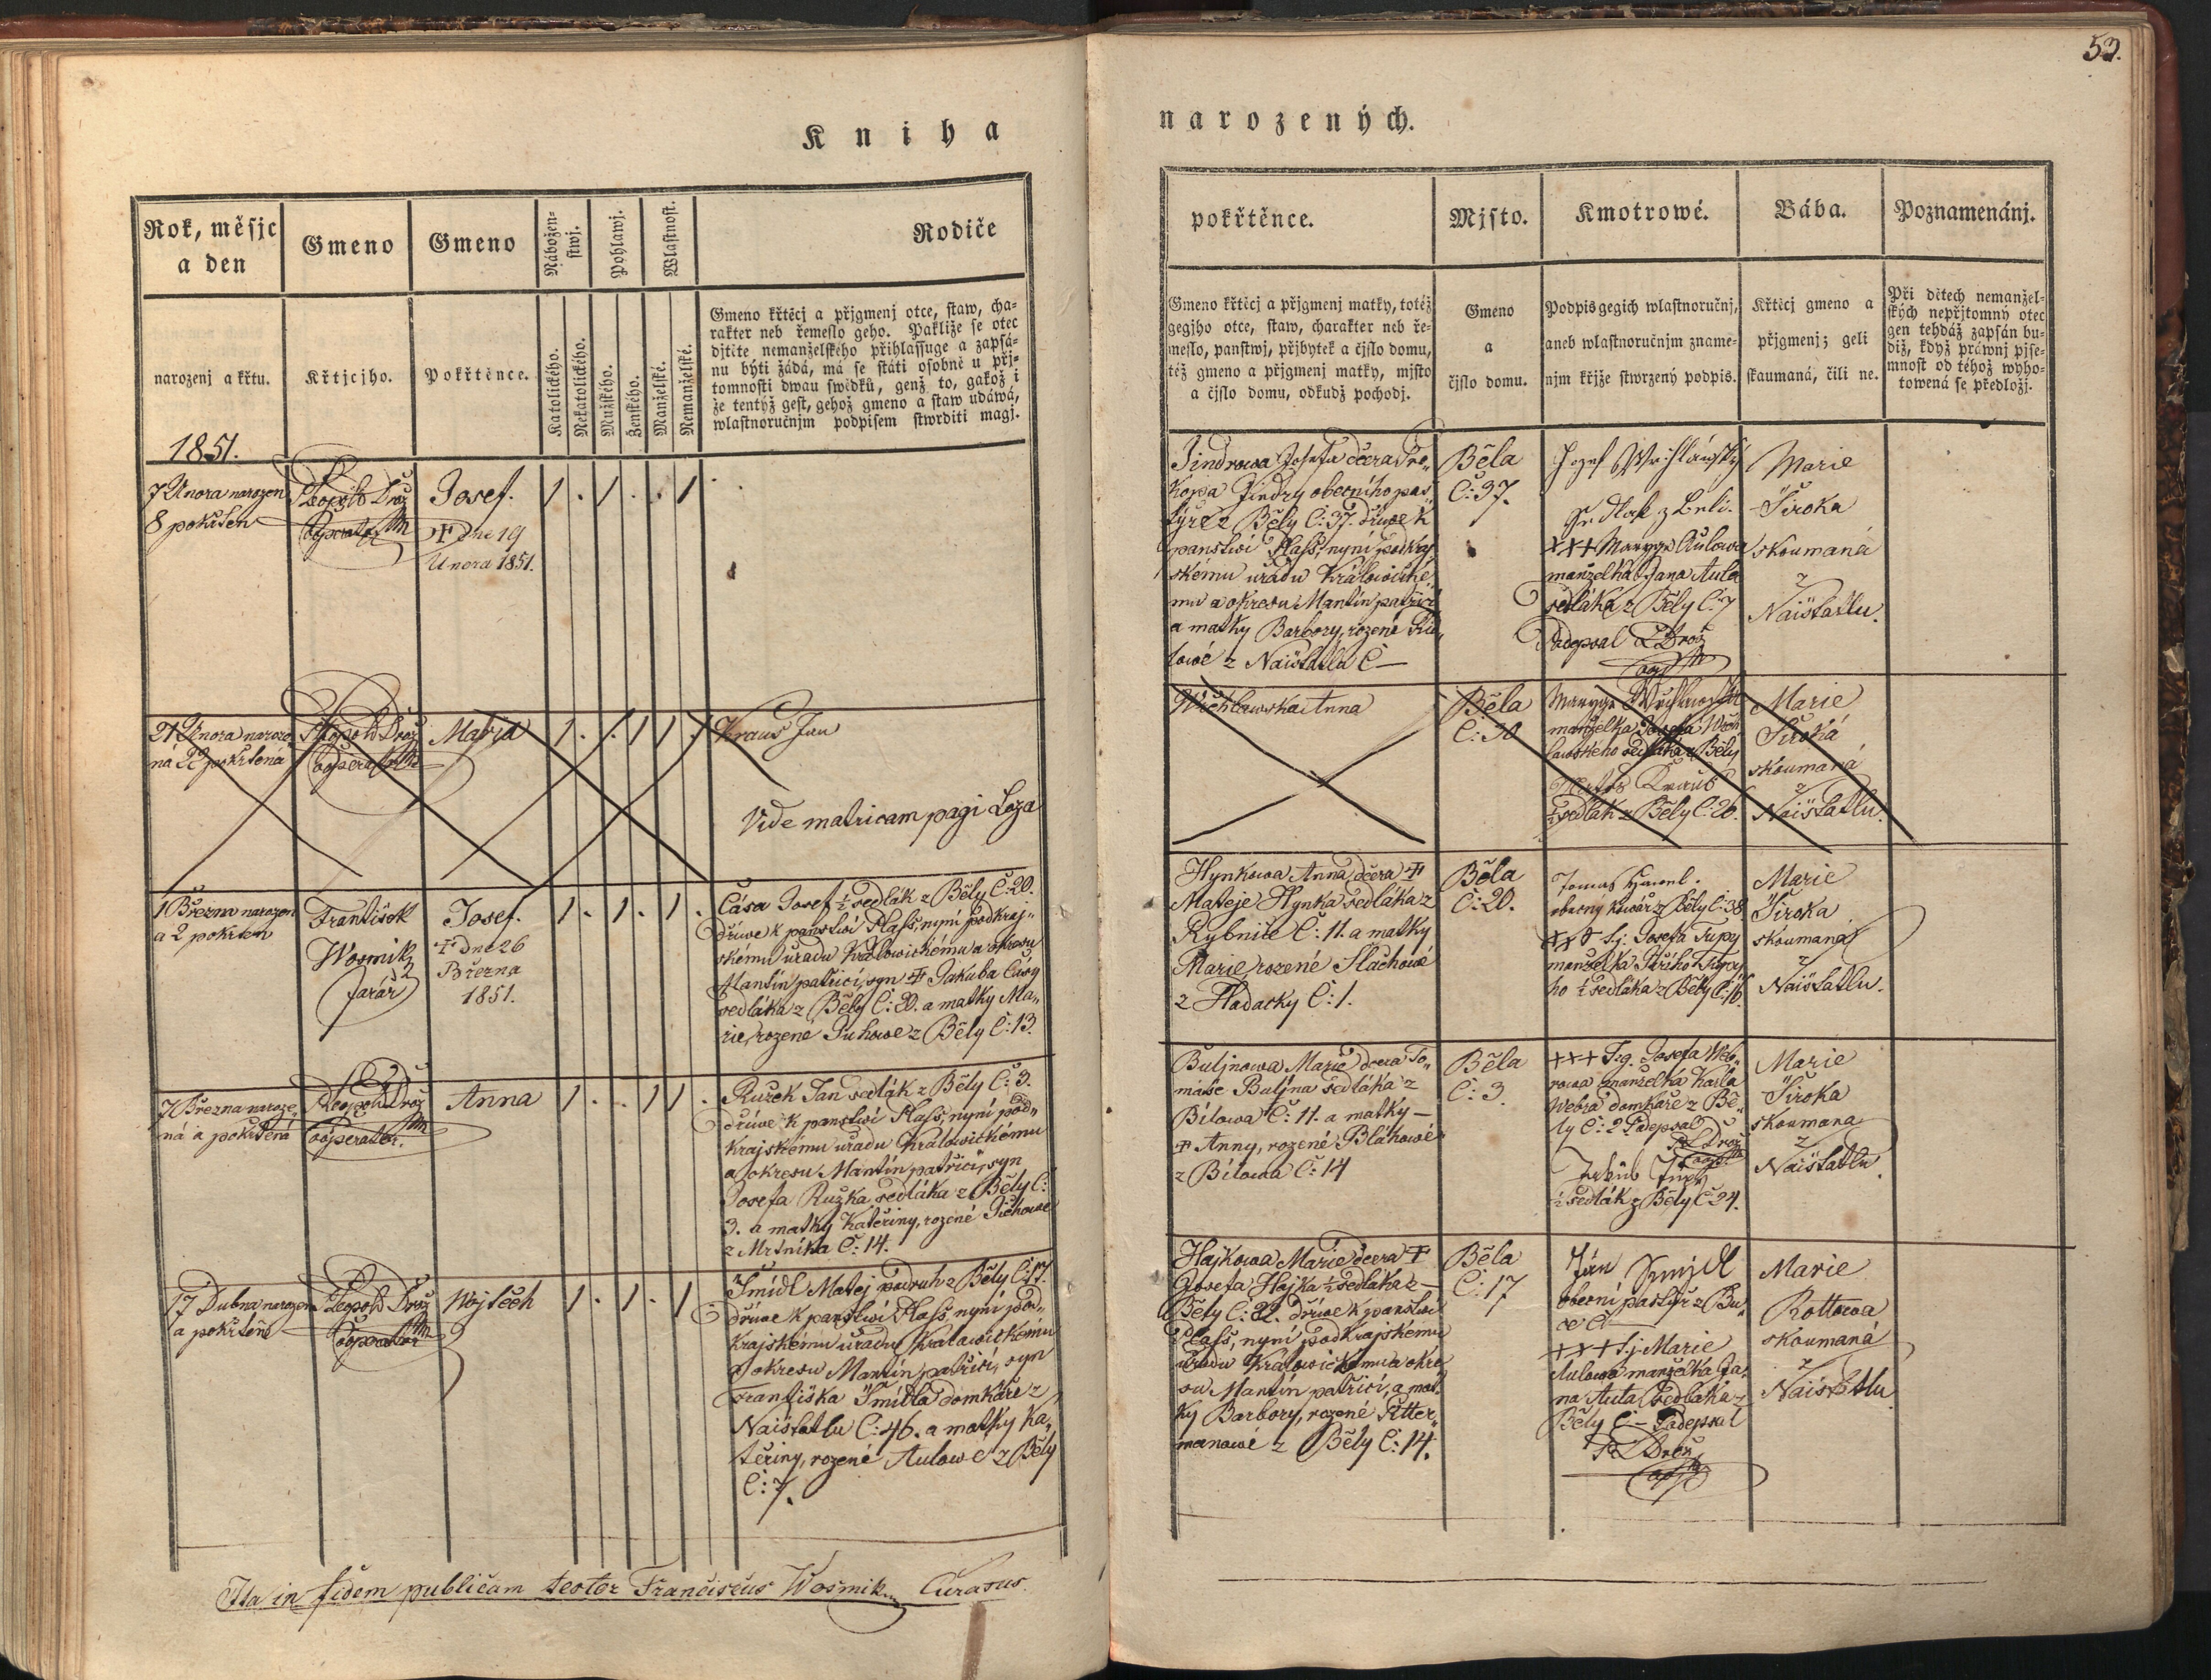 53.
Kniha
narozených.
Rok, měsjc
a den
Gmeno
Gmeno
Nábožen-
stwj.
Pohlawj.
Wlastnost.
Rodiče
narozenj a křtu.
Křtjcjho.
Pokřtěnce.
Katolického.
Nekatolického.
Mužského.
Ženského.
Manželské.
Nemanželské.
Gmeno křtěcj a přjgmenj otce, staw, cha-
rakter neb řemeslo geho. Pakliže se otec
djtěte nemanželského přihlassuge a zapsá-
nu býti žádá, má se státi osobně u přj-
tomnosti dwau swědků, genž to, gakož i
že tentýž gest, gehož gmeno a staw udáwá,
wlastnoručnjm podpisem stwrditi magj.
1851.
7 Unora narozen
8 pokřten
Leopold Drož
Cooperator
Josef.
† Dne 19
Unora 1851.
1 . 1 . . 1
21 Unora naroze
ná 22 pokřtená
Leopold Drož
Cooperator
Maria
1 . . 1 1 .
Kraus Jan
Vide matricam pagi Loza
1 Března narozen
a 2 pokřten
František
Wosmik
farář
Josef.
† Dne 26
Března
1851.
1 . 1 . 1 .
Čása Josef ½ sedlák z Běly Č: 20.
dříwe k panstwí Plass, nyní pod kraj-
skému uřadu Kralowickému a okresu
Manětín patřící, syn † Jakuba Čásy
sedláka z Běly Č: 20. a matky Ma-
rie, rozené Puhowe z Běly Č: 13.
7 Března naroze-
ná a pokřtená
Leopold Drož
Cooperator.
Anna
1 . . 1 1 .
Ružek Jan sedlák z Běly Č: 3.
dříwe k panstwí Plass, nyní pod-
krajskému uřadu Kralowickému
a okresu Manětín patřící, syn
Josefa Ružka sedláka z Běly Č:
3. a matky Kateřiny, rozené
z Mrtníka Č: 14.
17 Dubna narozen
a pokřtěn
Leopold Drož
Cooperator
Wojtěch
1 . 1 . 1
Šmídl Matej podruh z Běly Č: 17.
dříwe k panstwí Plass, nyní pod-
krajskému uřadu Kralowickému
a okresu Manětín patřící, syn
Františka Šmídla domkáře z
Naištatlu Č: 46. a matky Ka-
těřiny, rozené Aulowe z Běly
Č: 7.
Ita in fidem publicam testor Franciscus Wosmik Curatus.
pokřtěnce.
Mjsto.
Kmotrowé.
Bába.
Poznamenánj.
Gmeno křtěcj a přjgmenj matky, totéž
gegjho otce, staw, charakter neb ře-
meslo, panstwj, přjbytek a čjslo domu,
též gmeno a přjgmenj matky, mjsto
a čjslo domu, odkudž pochodj.
Gmeno
a
čjslo domu.
Podpis gegich wlastnoručnj,
aneb wlastnoručnjm zname-
njm křjže stwrzený podpis.
Křtěcj gmeno a
přjgmenj; geli
skaumaná, čili ne.
Při dětech nemanžel-
ských nepřjtomný otec
gen tehdáž zapsán bu-
diž, když práwnj pjse-
mnost od téhož wyho-
towená se předložj.
Jindrowa Josefa dcera Pro-
kopa Jindry obecního pas-
týře z Běly Č: 37. dříwe k
panstwí Plass, nyní pod kraj-
skému uřadu Kralowické-
mu a okresu Manětín patřící
a matky Barbory, rozené
z Naištatlu Č —
Běla
Č: 37.
Jozef
Sedlak z Beli.
+++ Marye Aulowa
manželka Jana Aula
sedláka z Běly Č: 7
Podepsal L Drož
Marie
Široka
skoumaná
z
Naištatlu.
Wrchlawska Anna
Běla
Č: 30
manželka Josefa
sedláka z Běly
Kraus
½ sedlák z Běly Č: 26.
Marie
Široká
skoumaná
z
Naištatlu.
Hynkowa Anna, dcera †
Mateje Hynka sedláka z
Rybnice Č: 11. a matky
Marie, rozené Slachowé
z Hadacky Č: 1.
Běla
Č: 20.
Tomas Hawel.
obecny kowář z Běly Č: 38
Josefa Tupy
manželka Jiřího Tupy-
ho ½ sedláka z Běly Č: 16.
Marie
Široka
skoumaná
z
Naištatlu.
Buljnowa Marie dcera To-
máše Buljna sedláka z
Bílowa Č: 11. a matky —
† Anny, rozené Bláhowé
z Bílowa Č: 14
Běla
Č: 3.
+++ Josefa Web-
rowa manželka Karla
Webra domkáře z Bě-
ly Č: 2 Podepsal
L Drož
½ sedlák z Běly Č: 24.
Marie
Široka
skoumana
z
Naištatlu.
Hajkowa Marie dcera †
Josefa Hajka ½ sedláka z
Běly Č: 22. dříwe k panstwí
Plass, nyní pod krajskému
uřadu Kralowickému a okre-
su Manětín patřící, a mat-
ky Barbory, rozené Ritter-
manowé z Běly Č: 14.
Běla
Č: 17
Ján Smjdl
obecní pastýř z
+++ Marie
Aulowa manželka Ja-
na Aula sedláka z
Běly Č — Podepsal
L Drož
Marie
Rottowa
skoumaná
z
Naištatlu